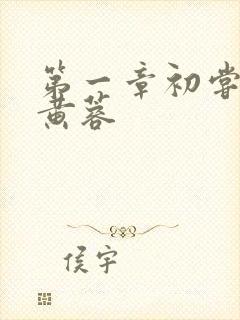 第一章初尝
黄蓉
侯宇